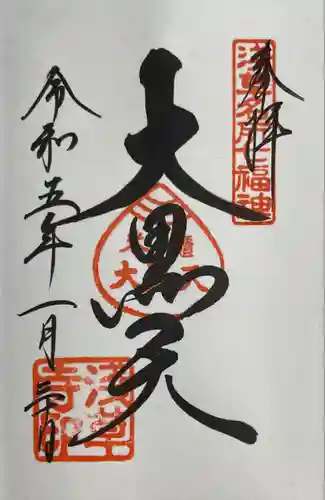 奉拝
浅草名所七福神
大黒天
令和五年一月三日
浅草寺印